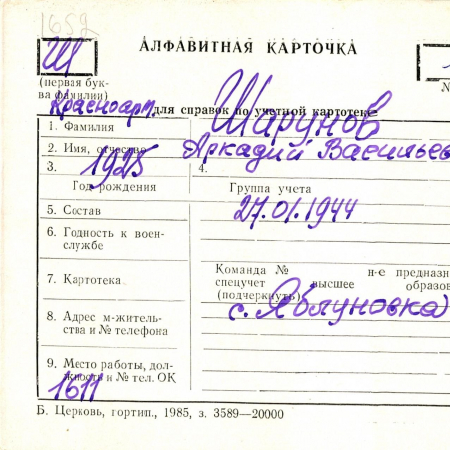 1652
Ш
АЛФАВИТНАЯ КАРТОЧКА
(первая бук-
ва фамилии)
№
Красноарм.
для справок по учетной картотеке
1. Фамилия Шарунов
2. Имя, отчество Аркадий Васильев
3. 1925 4.
Год рождения Группа учета
5. Состав 27.01.1944
6. Годность к воен-
службе
Команда № н-е предназн
7. Картотека спецучет высшее образов
(подчеркнуть)
с. Яблуновка
8. Адрес м-житель-
ства и № телефона
9. Место работы, дол-
жность и № тел. ОК
1611
Б. Церковь, гортип., 1985, з. 3589—20000